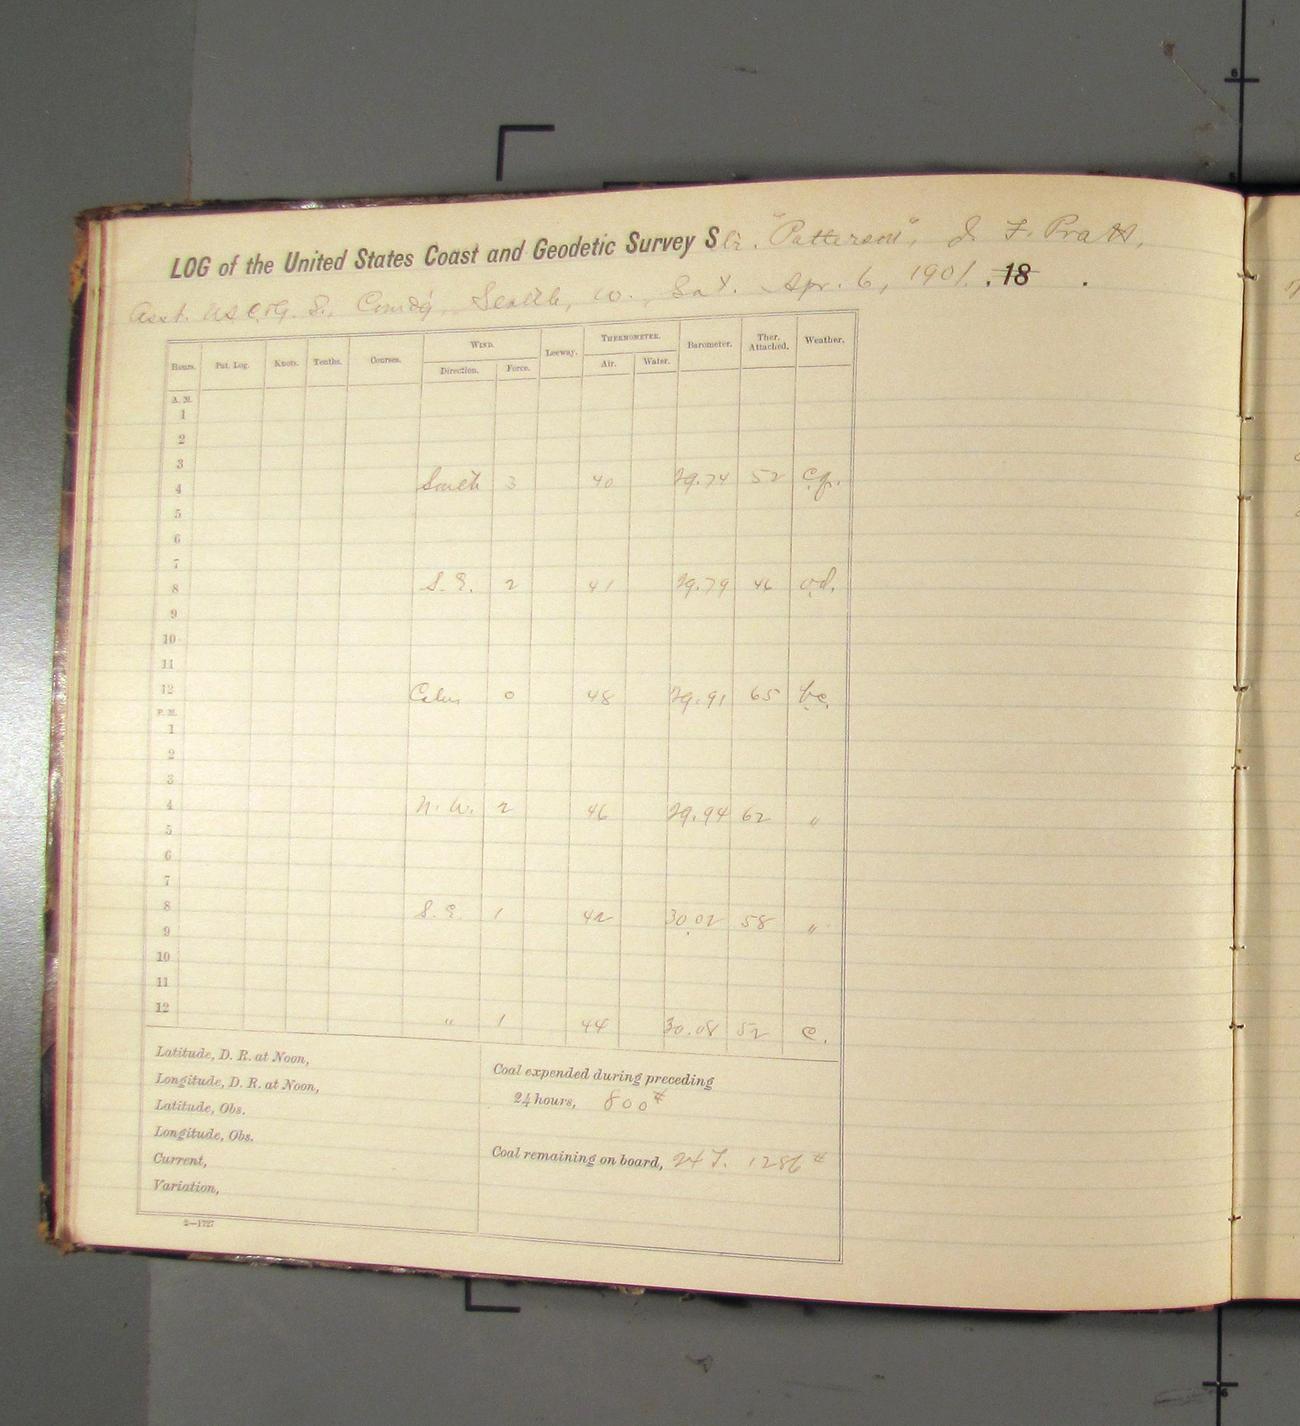 LOG of the United States Coast and Geodetic Survey Str. "Patterson", J. F. Pratt,
Asst. U.S.C.&G. S., Comd'g, Seattle, W., Sat. Apr. 6, 1901. , 18 .
Hours. Pat. Log. Knots. Tenths. Courses. WIND. Direction. Force. Leeway. THERMOMETER. Air. Water. Barometer. Ther. Attached. Weather.
A. M.
1
2
3
4 South 3 40 29.74 52 c.q.
5
6
7
8 S. E. 2 41 29.79 46 o.d.
9
10
11
12 Calm 0 48 29.91 65 b.c.
P. M.
1
2
3
4 N. W. 2 46 29.94 62 "
5
6
7
8 S. E. 1 42 30.02 58 "
9
10
11
12 " 1 44 30.08 52 c.
Latitude, D. R. at Noon,
Longitude, D. R. at Noon,
Latitude, Obs.
Longitude, Obs.
Current,
Variation,
Coal expended during preceding
24 hours, 800#
Coal remaining on board, 24 T. 1286#
2—1727